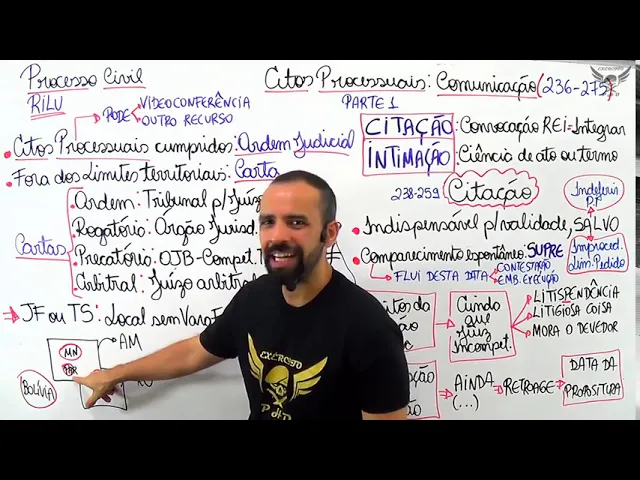 Processo Civil
RILU
PODE
VIDEOCONFERÊNCIA
OUTRO RECURSO
Citos Processuais: Comunicação (236-275)
PARTE 1
Citos Processuais cumpridos: Ordem Judicial
Fora dos Limites territoriais: Carta
Cartas
Ordem: Tribunal p/ Juízo
Rogatório: Órgão Jurisd.
Precatório: OJB-Compet.T
Arbitral: Juízo arbitral
JF ou TS: Local sem Vara F
MN
AM
BOLÍVIA
CITAÇÃO: Convocação REI=Integrar
INTIMAÇÃO: Ciência de ato ou termo
238-259 Citação
Indeferir
P.I
Indispensável p/validade, SALVO
Improced.
Lim. Pedido
Comparecimento espontâneo: SUPRE
FLUI DESTA DATA
CONTESTAÇÃO
EMB. EXECUÇÃO
itos da
ão
Cinda
que
Juiz
incompet.
LITISPENDÊNCIA
LITIGIOSA COISA
MORA O DEVEDOR
ação
ão
AINDA
(...)
RETROAGE
DATA DA
PROPOSITURA
EXÉRCITO
P d P